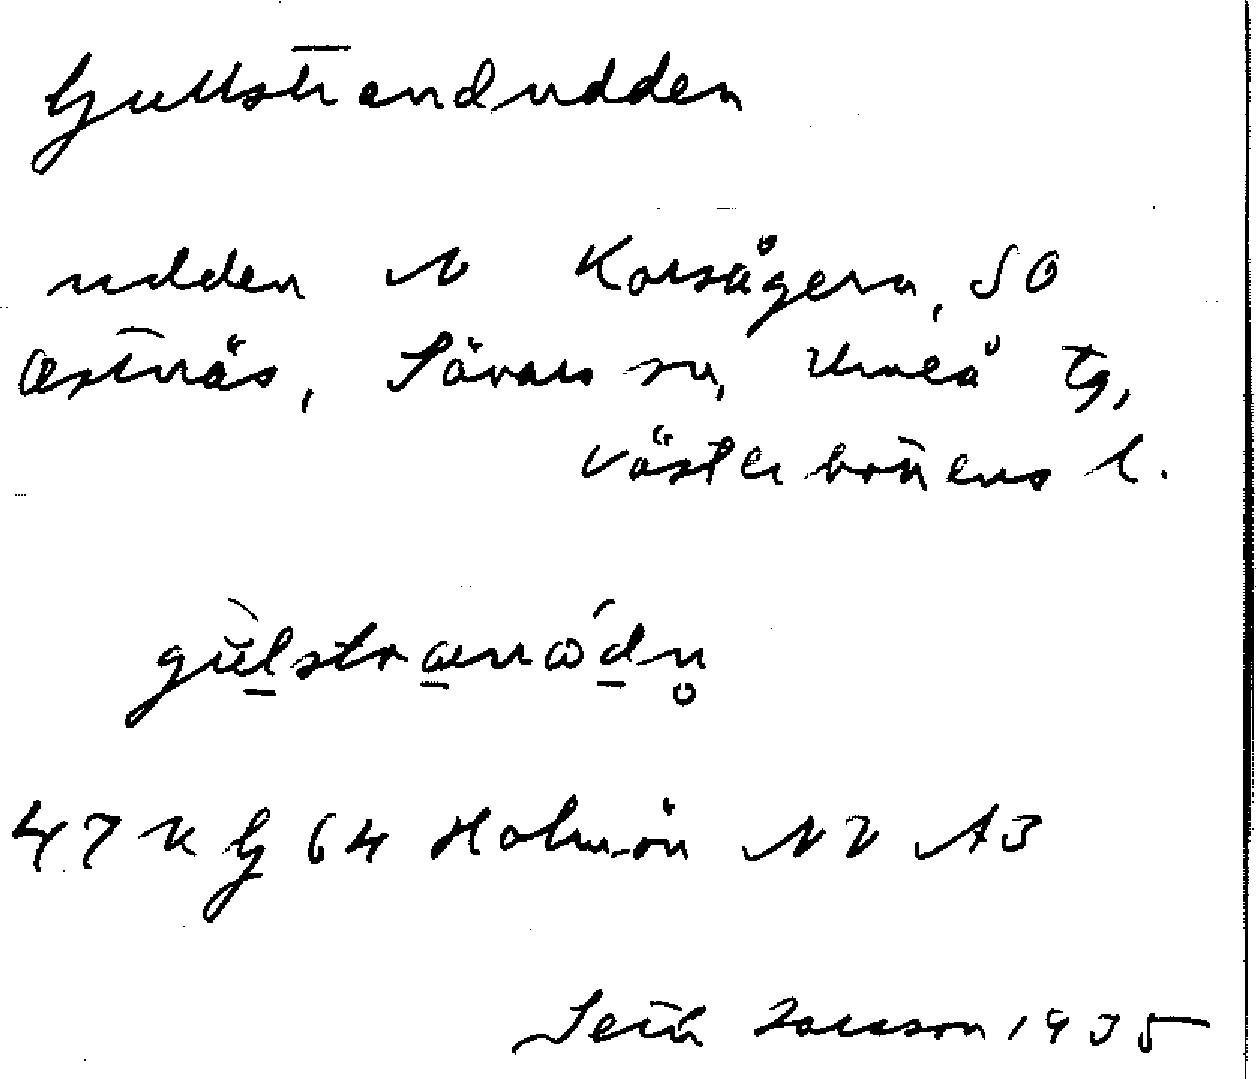 Gullstrandudden
udden N Korsågern, SO
Östnäs, Sävars sn, Umeå tg,
Västerbottens l.
47 K G 64 Holmön NV A3
Seth Larsson 1935